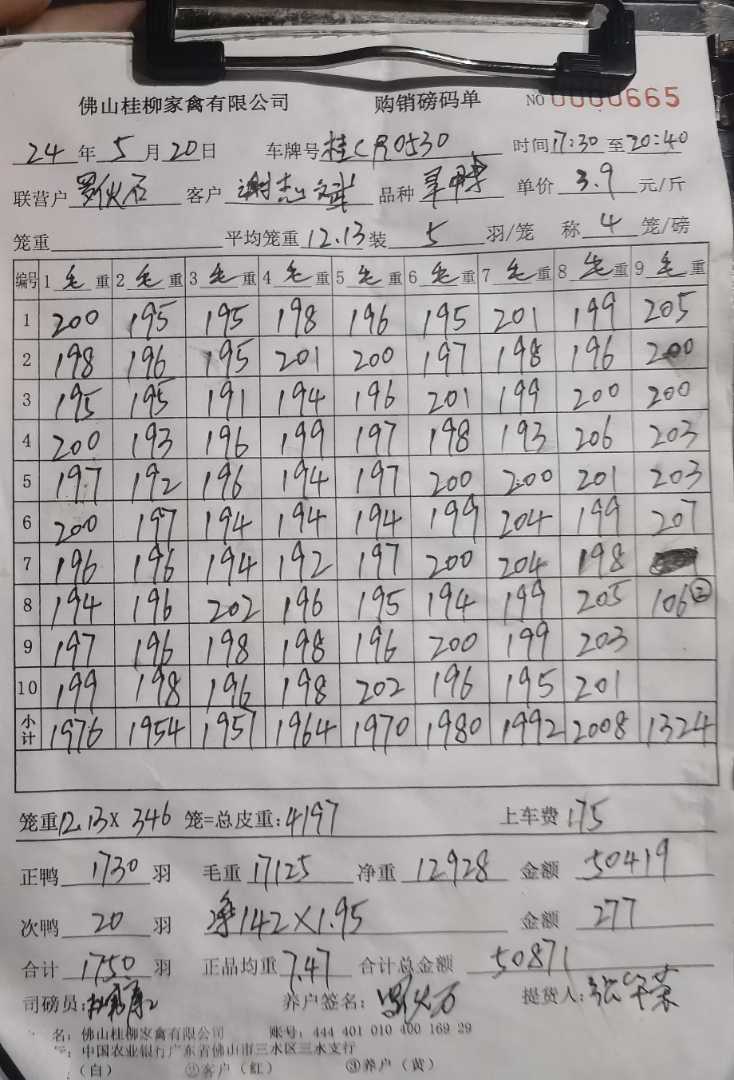 佛山桂柳家禽有限公司 购销磅码单 NO 0000665
24 年 5 月 20 日 车牌号 桂CR0530 时间 17:30 至 20:40
联营户 罗火石 客户 谢志斌 品种 单价 3.9 元/斤
笼重 平均笼重 12.13 装 5 羽/笼 称 4 笼/磅
编号 1 毛 重 2 毛 重 3 毛 重 4 毛 重 5 毛 重 6 毛 重 7 毛 重 8 毛 重 9 毛 重
1 200 195 195 198 196 195 201 199 205
2 198 196 195 201 200 197 198 196 200
3 195 195 191 194 196 201 199 200 200
4 200 193 196 199 197 198 193 206 203
5 197 192 196 194 197 200 200 201 203
6 200 197 194 194 194 199 204 199 207
7 196 196 194 192 197 200 204 198
8 194 196 202 196 195 194 199 205 106②
9 197 196 198 198 196 200 199 203
10 199 198 196 198 202 196 195 201
小计 1976 1954 1957 1964 1970 1980 1992 2008 1324
笼重 12.13 X 346 笼=总皮重: 4197 上车费 175
正鸭 1730 羽 毛重 17125 净重 12928 金额 50419
次鸭 20 羽 净142×1.95 金额 277
合计 1750 羽 正品均重 7.47 合计总金额 50871
司磅员: 养户签名: 罗火石 提货人:
名: 佛山桂柳家禽有限公司 账号: 444 401 010 400 169 29
中国农业银行广东省佛山市三水区三水支行
(白) ②客户(红) ③养户(黄)